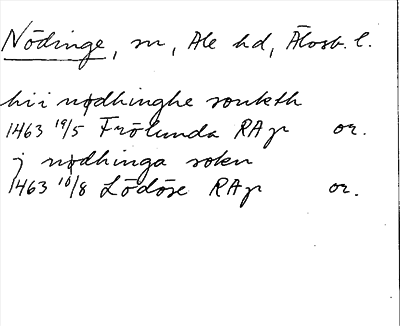 Nödinge, sn, Ale hd, Älvsb. l.
hi i nødhinghe sonketh
1463 19/5 Frölunda RAp or.
j nødhinga sokn
1463 10/8 Lödöse RAp or.